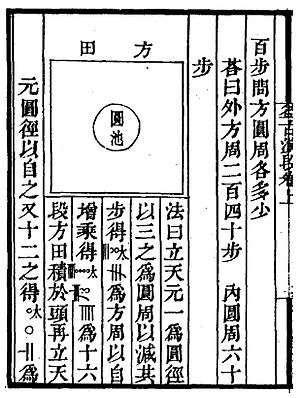 百步問方圓周各多少
荅曰外方周二百四十步 內圓周六十
步
方田
圓池
法曰立天元一爲圓徑
以三之爲圓周以減共
步得太爲方周以自
增乘得太爲十六
段方田積於頭再立天
元圓徑以自之又十二之得太〇〢爲